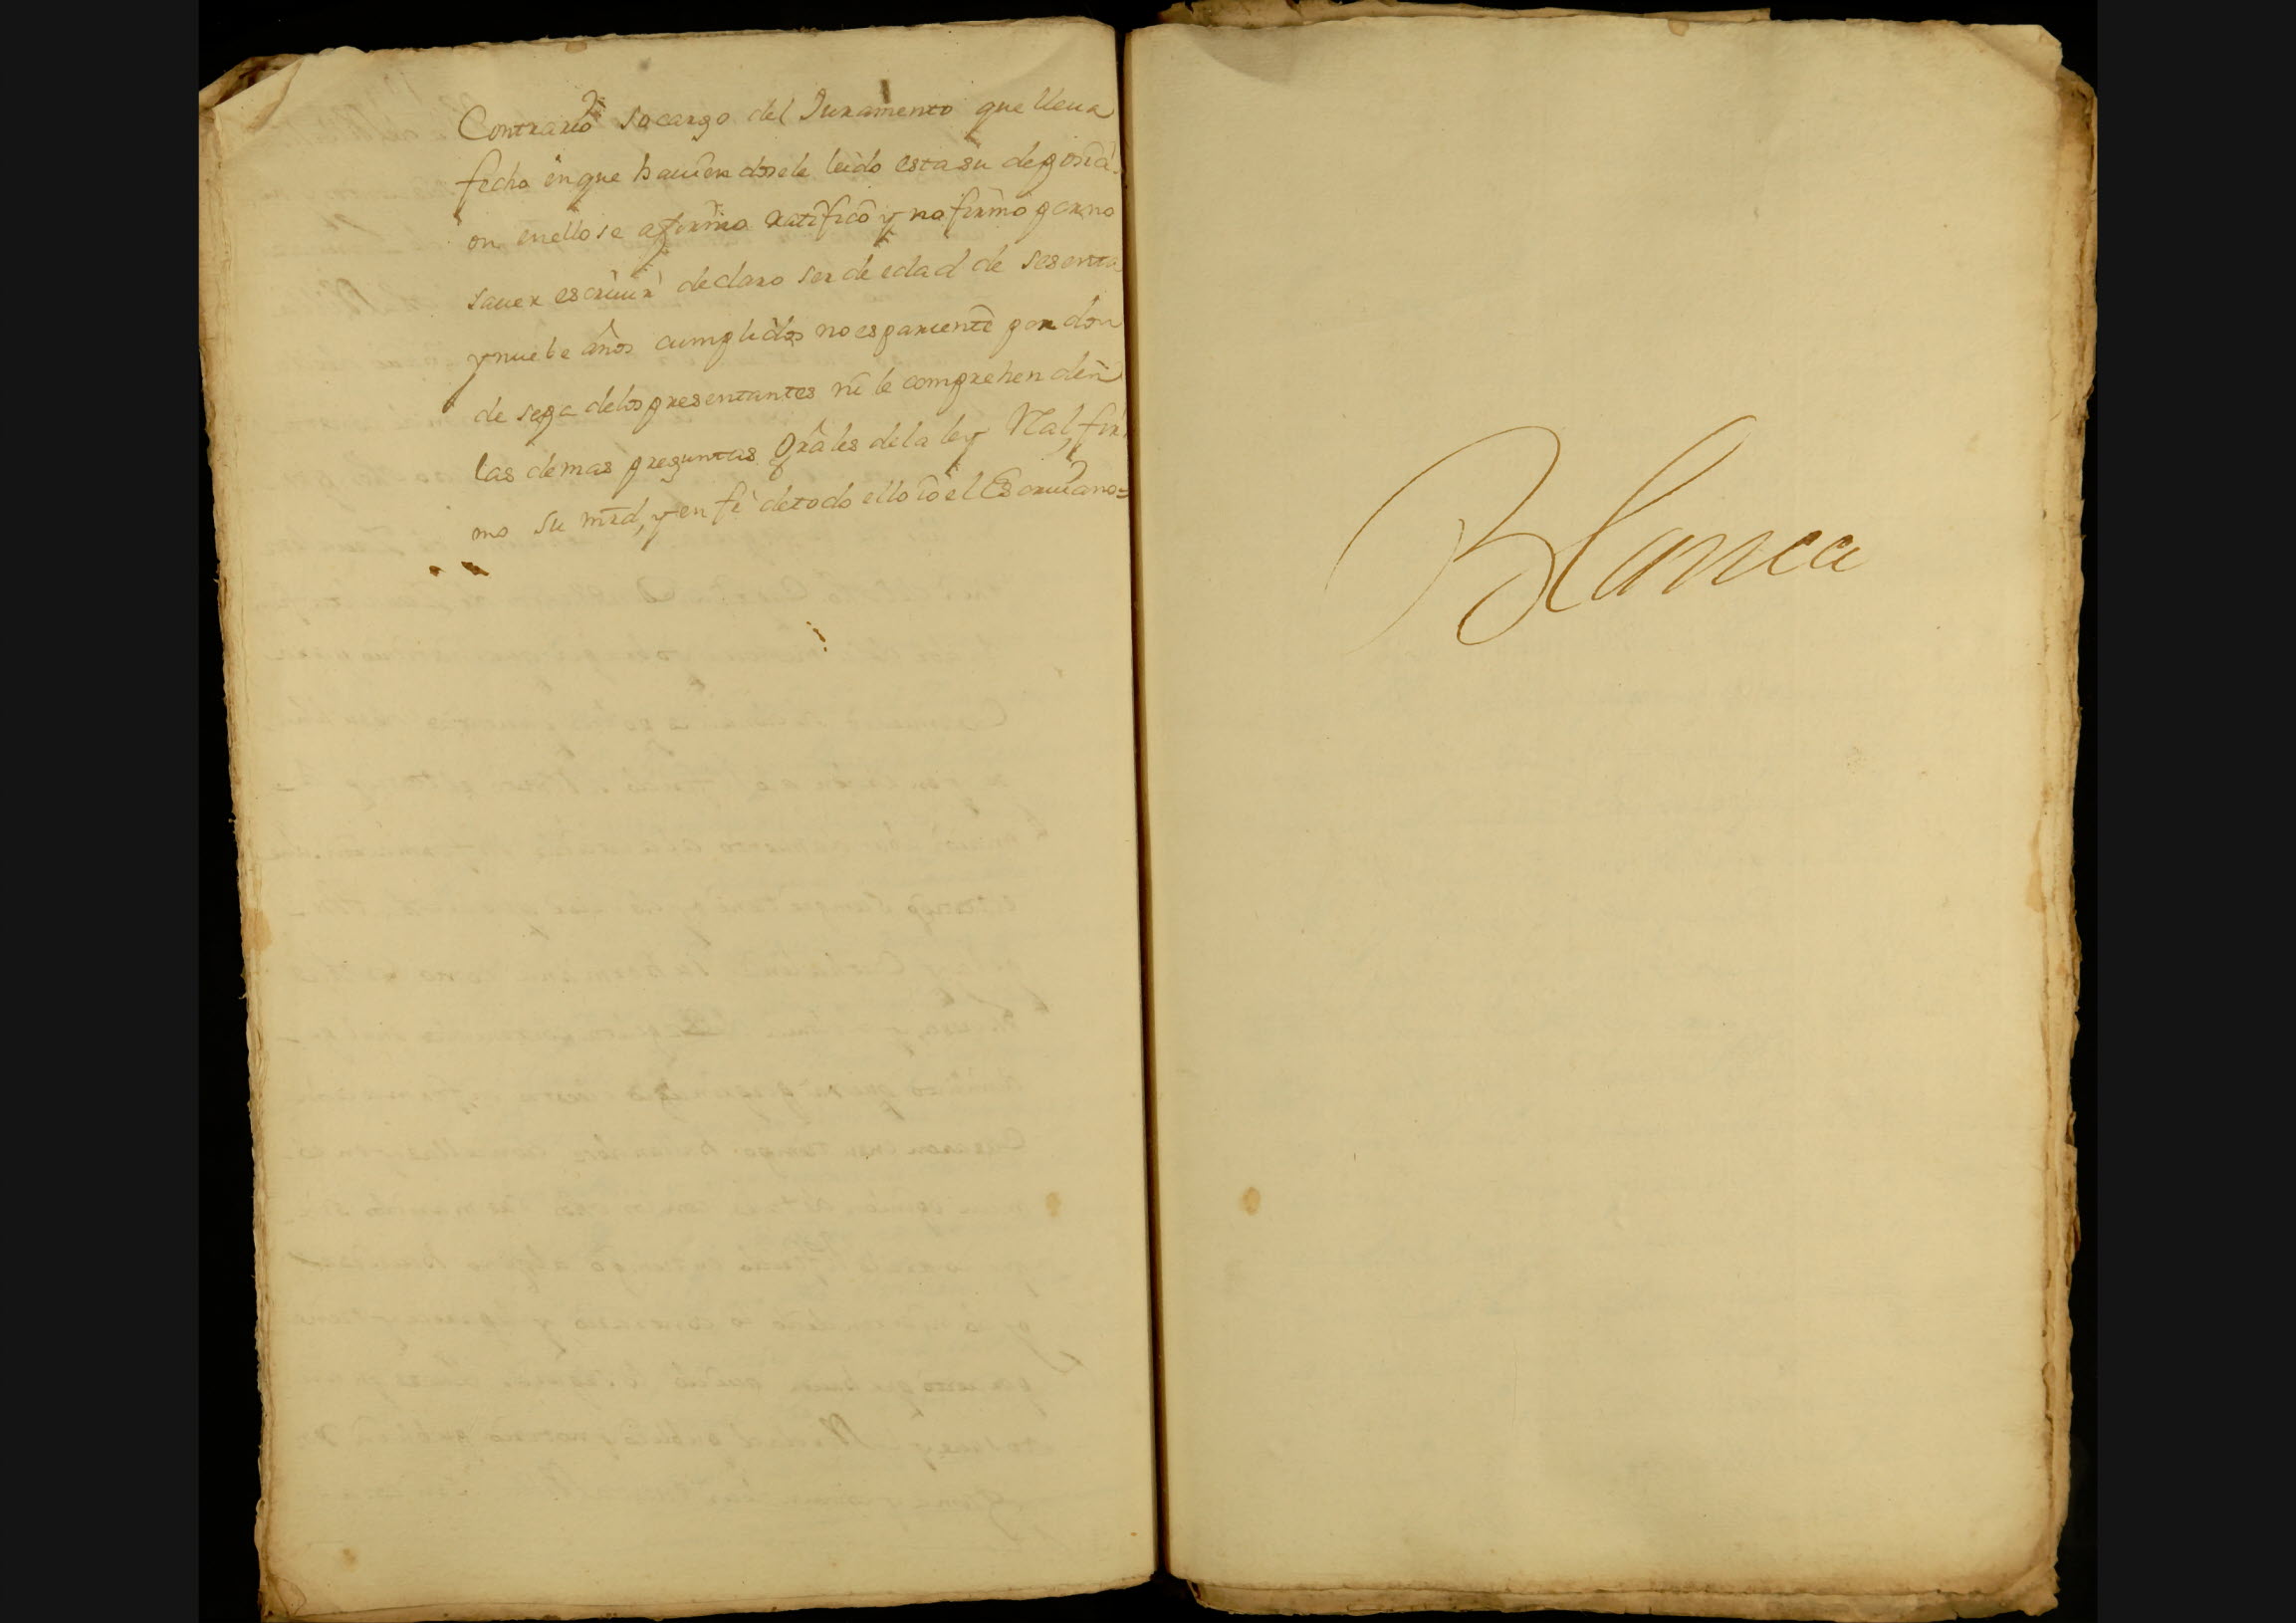 Contrario socargo del Juramento que lleua
fecho en que hauiendosele leido esta su deposici
on en ello se afirmo ratificó y no firmó por no
sauer escriuir declaro ser de edad de sesenta
y nuebe años cumplidos no es pariente por don
de sepa delos presentantes ni le comprehenden
las demas preguntas Grâles dela ley Ral, fir
mo su mrd, y en fé de todo ello io el Escriuano=
Blanca